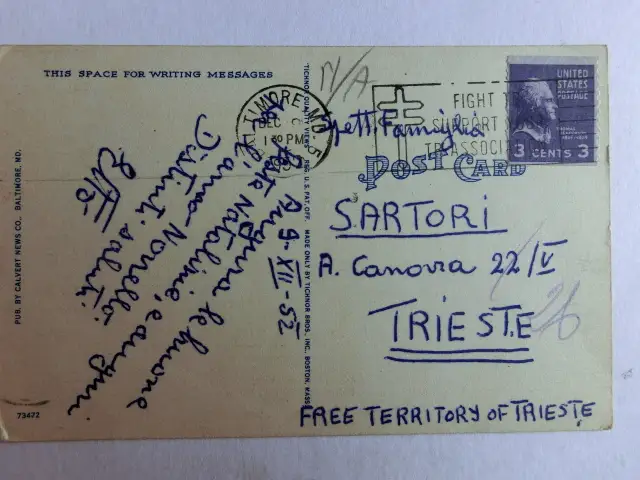 THIS SPACE FOR WRITING MESSAGES
TIMORE, MD.
DEC
PM
FIGHT T
SUPPORT
TB ASSOCI
UNITED
STATES
POSTAGE
3 CENTS 3
N/A
POST CARD
Spett. Famiglia
SARTORI
A. Canova 22/V
26
TRIESTE
FREE TERRITORY OF TRIESTE
9-XII-52
Auguro le buone
Feste Natalizie, e auguri
L'anno Novello.
Distinti saluti.
PUB. BY CALVERT NEWS CO., BALTIMORE, MD.
73472
TICHNOR QUALITY VIEWS REG. U.S. PAT. OFF. MADE ONLY BY TICHNOR BROS., INC., BOSTON, MASS.